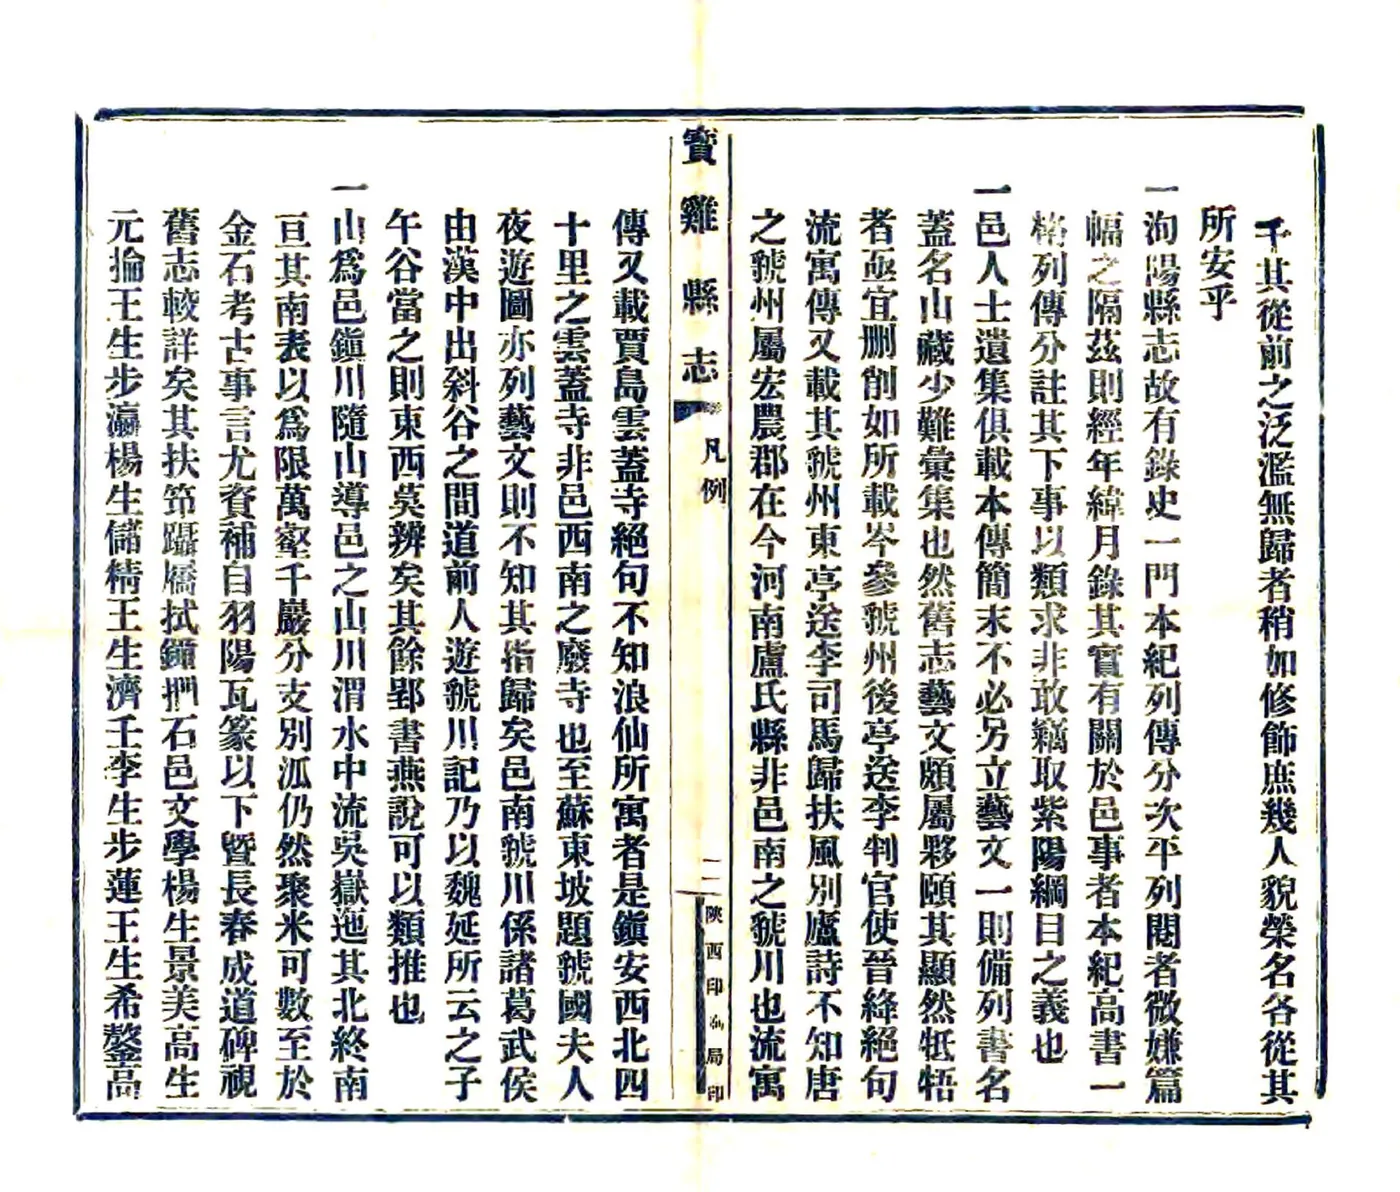 千其從前之泛濫無歸者稍加修飾庶幾人貌榮名各從其
所安乎
一洵陽縣志故有錄史一門本紀列傳分次平列閱者微嫌篇
幅之隔茲則經年緯月錄其實有關於邑事者本紀高書一
格列傳分註其下事以類求非敢竊取紫陽綱目之義也
一邑人士遺集俱載本傳簡末不必另立藝文一則備列書名
蓋名山藏少難彙集也然舊志藝文頗屬夥頤其顯然牴牾
者亟宜删削如所載岑參虢州後亭送李判官使晉絳絕句
流寓傳又載其虢州東亭送李司馬歸扶風別廬詩不知唐
之虢州屬宏農郡在今河南盧氏縣非邑南之虢川也流寓
寶雞縣志
凡例
二
陝西印局印
傳又載賈島雲蓋寺絕句不知浪仙所寓者是鎮安西北四
十里之雲蓋寺非邑西南之廢寺也至蘇東坡題虢國夫人
夜遊圖亦列藝文則不知其指歸矣邑南虢川係諸葛武侯
由漢中出斜谷之間道前人遊虢川記乃以魏延所云之子
午谷當之則東西莫辨矣其餘郢書燕說可以類推也
一山爲邑鎮川隨山導邑之山川渭水中流吳嶽迤其北終南
亘其南表以爲限萬壑千巖分支別派仍然聚米可數至於
金石考古事言尤資補自羽陽瓦篆以下暨長春成道碑視
舊志較詳矣其扶笻躡屩拭鐫捫石邑文學楊生景美高生
元掄王生步瀛楊生儲精王生濟千李生步蓮王生希鏊高